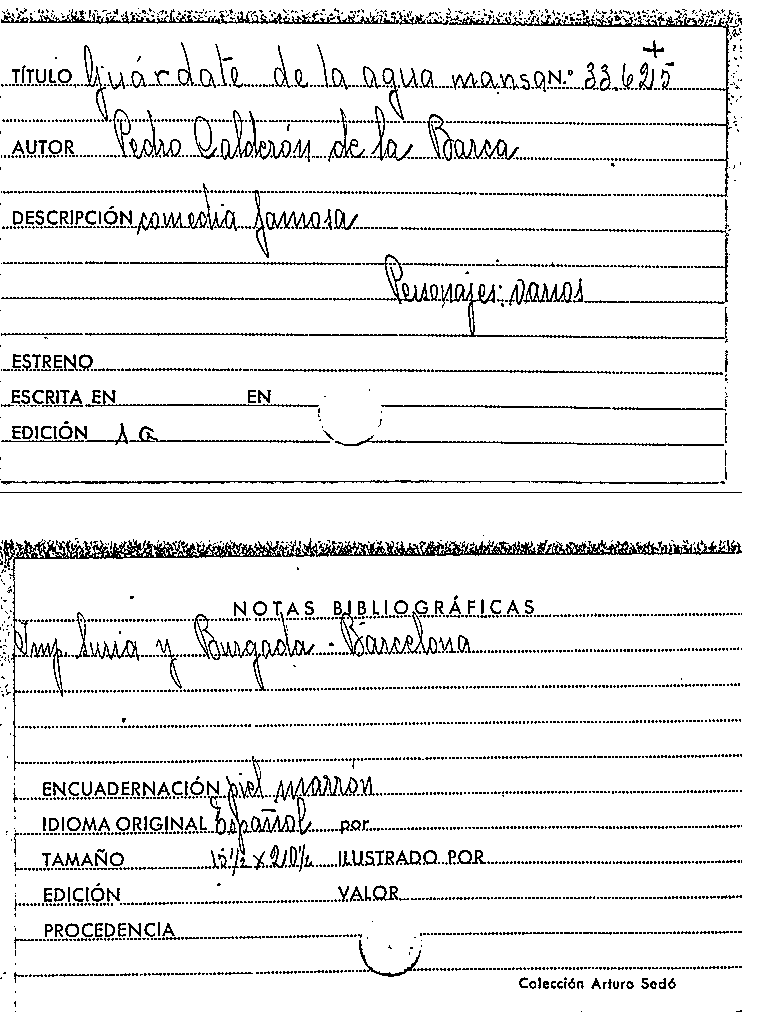 TÍTULO Guárdate de la agua mansa N.º 33.625
AUTOR Pedro Calderón de la Barca
DESCRIPCIÓN comedia famosa
Personajes: varios
ESTRENO
ESCRITA EN EN
EDICIÓN 1a
NOTAS BIBLIOGRÁFICAS
Imp. Suria y Burgada - Barcelona
ENCUADERNACIÓN piel marrón
IDIOMA ORIGINAL Español por
TAMAÑO 15½ x 210½ ILUSTRADO POR
EDICIÓN VALOR
PROCEDENCIA
Colección Arturo Sedó